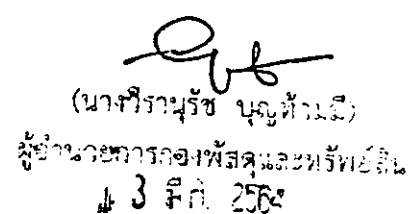 (นางวีรานุรัช บุญห้ามมี)
ผู้อำนวยการกองพัสดุและทรัพย์สิน
3 มี.ค.